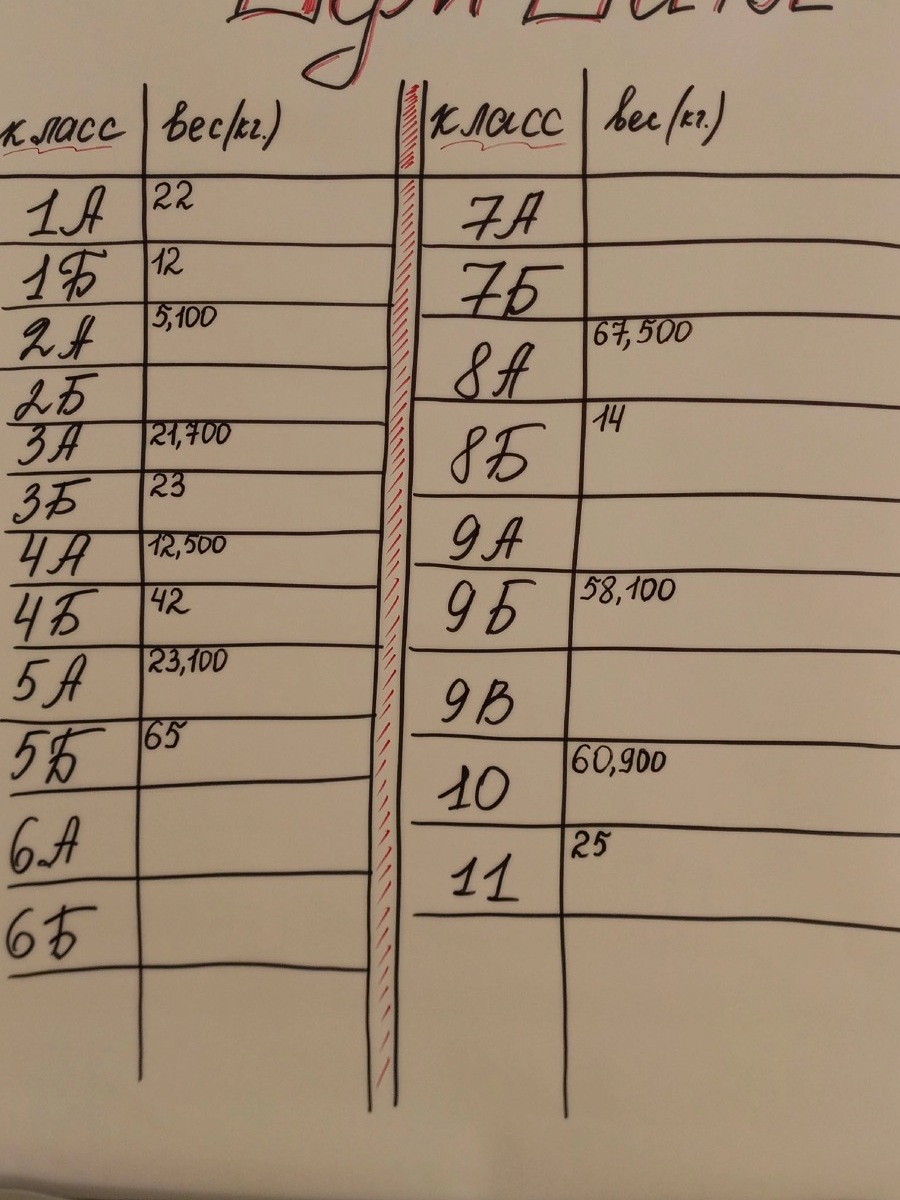 класс вес(кг.) класс вес(кг.)
1А 22 7А
1Б 12 7Б
2А 5,100 8А 67,500
2Б
3А 21,700 8Б 14
3Б 23
4А 12,500 9А
4Б 42 9Б 58,100
5А 23,100 9В
5Б 65 10 60,900
6А 11 25
6Б